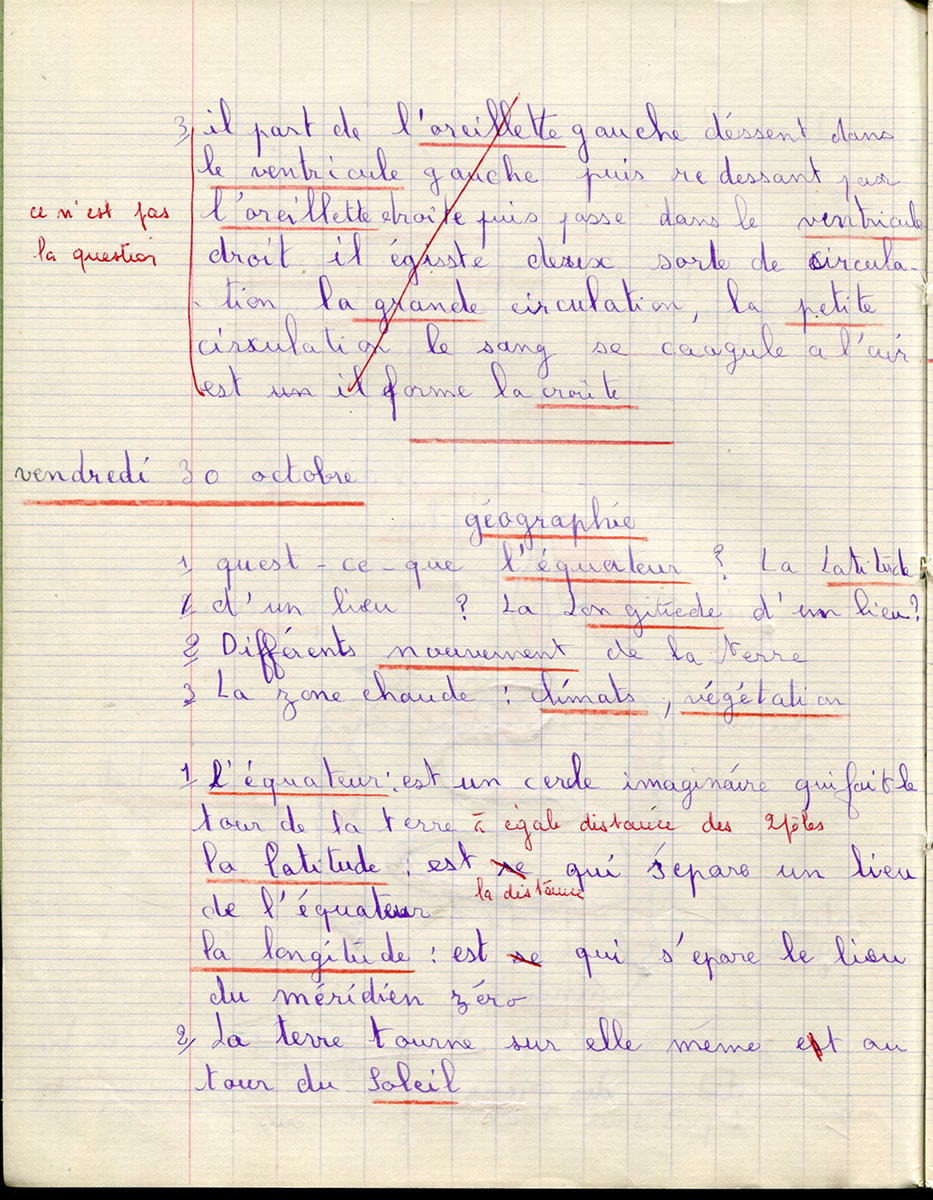 3 il part de l'oreillette gauche déssent dans
le ventricule gauche puis redessant par
ce n'est pas
l'oreillette droite puis passe dans le ventricule
la question
droit il égisste deux sorte de circula-
-tion la grande circulation, la petite
cirxulation le sang se caagule a l'air
est un il forme la croite
vendredi 30 octobre
géographie
1 quest-ce-que l'équateur ? La Latitude
d'un lieu ? La Longitiede d'un lieu?
2 Différents mouvement de la terre
3 La zone chaude : climats, végétation
1 l'équateur : est un cercle imaginaire qui fait le
tour de la terre à égale distance des 2 pôles
la latitude : est se qui sépare un lieu
la distance
de l'équateur
la longitude : est se qui s'epare le lieu
du méridien zéro
2 La terre tourne sur elle même est au
tour du Soleil